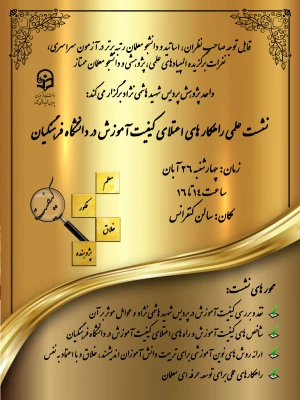 قابل توجه صاحب نظران، اساتید و دانشجو معلمان رتبه برتر در آزمون سراسری،
نفرات برگزیده المپیادهای علمی، پژوهشی و دانشجو معلمان ممتاز
واحد پژوهش پردیس شهید هاشمی نژاد برگزار می کند:
نشست علمی راهکارهای اعتلای کیفیت آموزش در دانشگاه فرهنگیان
زمان: چهارشنبه ۲۶ آبان
ساعت ۱۴ تا ۱۶
مکان: سالن کنفرانس
معلم
کیفیت
خلاق
پژوهنده
محورهای نشست:
نقد و بررسی کیفیت آموزش در پردیس شهید هاشمی نژاد و عوامل موثر بر آن
شاخص های کیفیت آموزش و راه های اعتلای کیفیت آموزش در دانشگاه فرهنگیان
ارائه روش های نوین آموزشی برای تربیت دانش آموزان اندیشمند، خلاق و با اعتماد به نفس
راهکارهای علمی برای توسعه حرفه ای معلمان